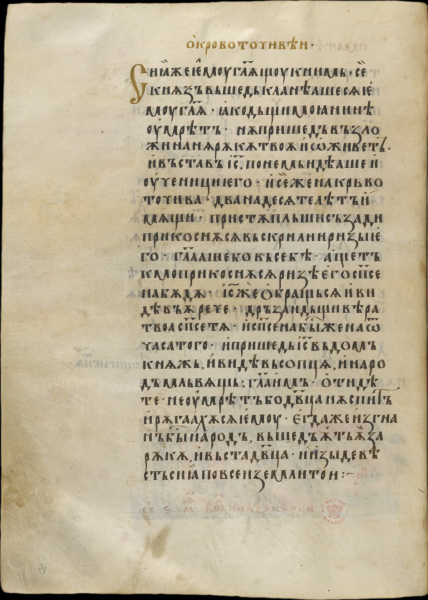 О кровоточивѣи ·
Сиꙗ же ѥмоу гл҃ѧщоу к нимь · се
кнѧзъ въшедъ кланѣаше сѧ ѥ
моу гл҃ѧ · ꙗко дъщи моꙗ нинѣ
оумрѣтъ · нѫ пришедъ възло
жи на нѫ рѫкѫ твоѫ и ѡживетъ ·
и въставъ іс҃ · по немь идѣаше и
оученици его · и се жена крьво
точива · дванадесѧте лѣтъ и
мѫщи · пристѫпльши съзади
прикоснѫ сѧ въскрилии ризы е
го · гл҃ааше бо въ себѣ · аще тъ
кмо прикоснѫ сѧ ризѣ его сп҃се
на бѫдѫ · іс҃ же обращь сѧ и ви
дѣвъ ѫ рече · дръзаи дъщи вѣра
твоа сп҃се тѧ · и сп҃сена бы҃ жена ѿ
часа того · и пришедъ іс҃ въ домъ
кнѧжь, и видѣвъ сопцѧ, и наро
дъ млъвѧщь, гл҃а имъ · отидѣ
те · не оумрѣтъ бо дв҃ца нѫ спитъ
и рѫгаахѫ сѧ ѥмоу · егда же изгна
нъ бы҃ народъ, въшедъ ѧтъ ѫ за
рѫкѫ, и въста дв҃ца · и изыде вѣ
сть сиꙗ по всеи земли тои :~